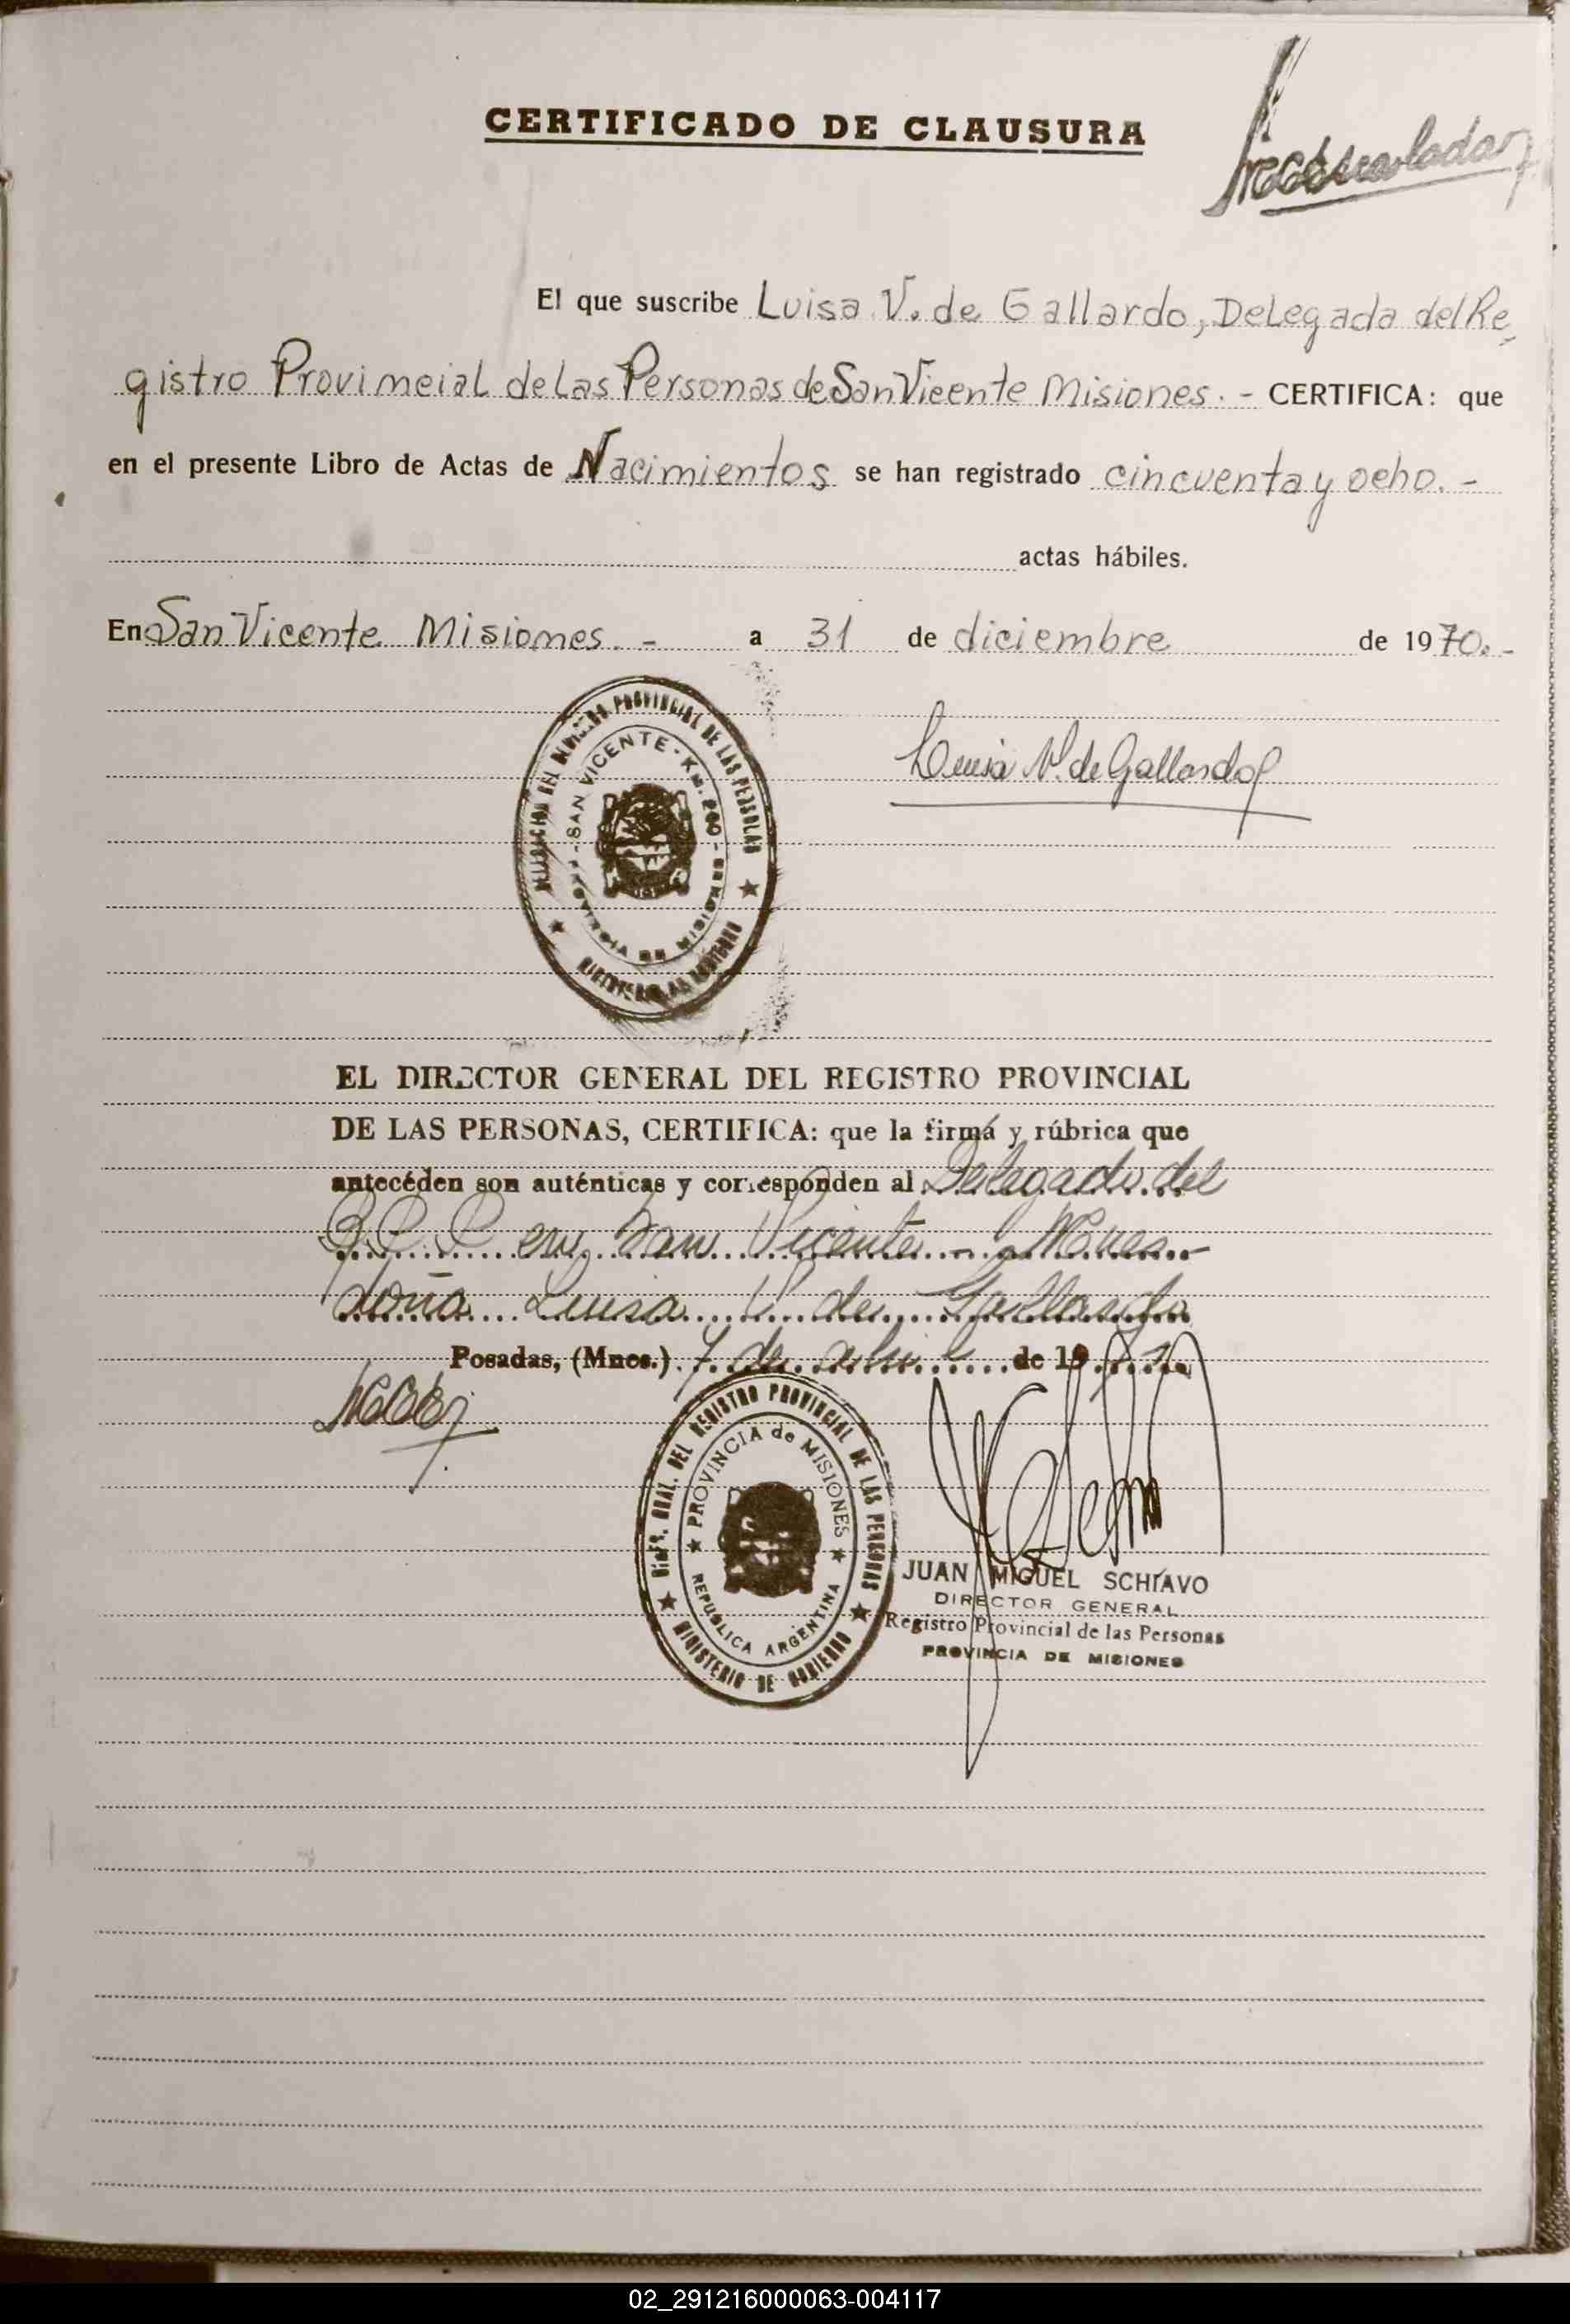 CERTIFICADO DE CLAUSURA
El que suscribe Luisa V. de Gallardo, Delegada del Re-
gistro Provimcial de las Personas de San Vicente Misiones. - CERTIFICA: que
en el presente Libro de Actas de Nacimientos se han registrado cincuenta y ocho. -
actas hábiles.
En San Vicente Misiones. - a 31 de diciembre de 1970. -
Luisa V. de Gallardo
DELEGACION DEL REGISTRO PROVINCIAL DE LAS PERSONAS
SAN VICENTE - Km. 260 -
PROVINCIA DE MISIONES
EL DIRECTOR GENERAL DEL REGISTRO PROVINCIAL
DE LAS PERSONAS, CERTIFICA: que la firma y rúbrica que
antecéden son auténticas y corresponden al Delegado del
R.P.P. en San Vicente - Mnes.-
doña Luisa V. de Gallardo
Posadas, (Mnes.) 7 de abril de 19
DIREC. GRAL. DEL REGISTRO PROVINCIAL DE LAS PERSONAS
PROVINCIA de MISIONES
REPUBLICA ARGENTINA
MINISTERIO DE GOBIERNO
JUAN MIGUEL SCHIAVO
DIRECTOR GENERAL
Registro Provincial de las Personas
PROVINCIA DE MISIONES
02_291216000063-004117